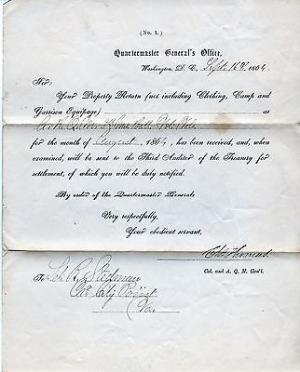 (No. 3.)
Quartermaster General's Office,
Washington, D. C., Sept 12th, 1864.
Sir:
Your Property Return (not including Clothing, Camp and
Garrison Equipage) as
for the month of August, 1864, has been received, and, when
examined, will be sent to the Third Auditor of the Treasury for
settlement, of which you will be duly notified.
By order of the Quartermaster General:
Very respectfully,
Your obedient servant,
Chs Thomas
Col. and A. Q. M. Gen'l.
To
City Point
Va